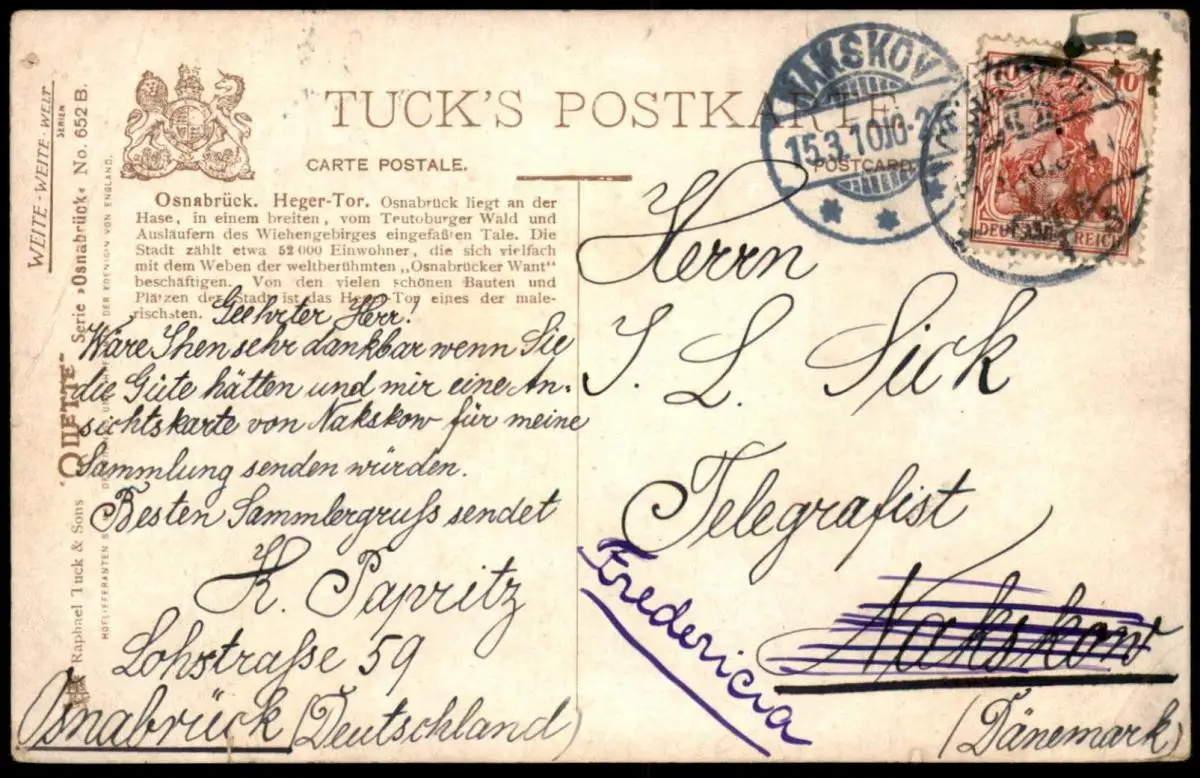 WEITE-WEITE-WELT
SERIEN
Serie »Osnabrück« No. 652 B.
Raphael Tuck & Sons "OILETTE"
TUCK'S POSTKARTE
CARTE POSTALE.
POSTCARD
Osnabrück. Heger-Tor. Osnabrück liegt an der
Hase, in einem breiten, vom Teutoburger Wald und
Ausläufern des Wiehengebirges eingefaßten Tale. Die
Stadt zählt etwa 52 000 Einwohner, die sich vielfach
mit dem Weben der weltberühmten „Osnabrücker Want"
beschäftigen. Von den vielen schönen Bauten und
Plätzen der Stadt ist das Heger-Tor eines der male-
rischsten.
Geehrter Herr!
Wäre Ihen sehr dankbar wenn Sie
die Güte hätten und mir eine An-
sichtskarte von Nakskow für meine
Sammlung senden würden.
Besten Sammlergruss sendet
K. Papritz
Lohstrasse 59
Osnabrück (Deutschland)
NAKSKOV
15.3.10
10
10
DEUTSCHES REICH
Herrn
J. L. Sick
Telegrafist
Nakskow
Fredericia
(Dänemark)